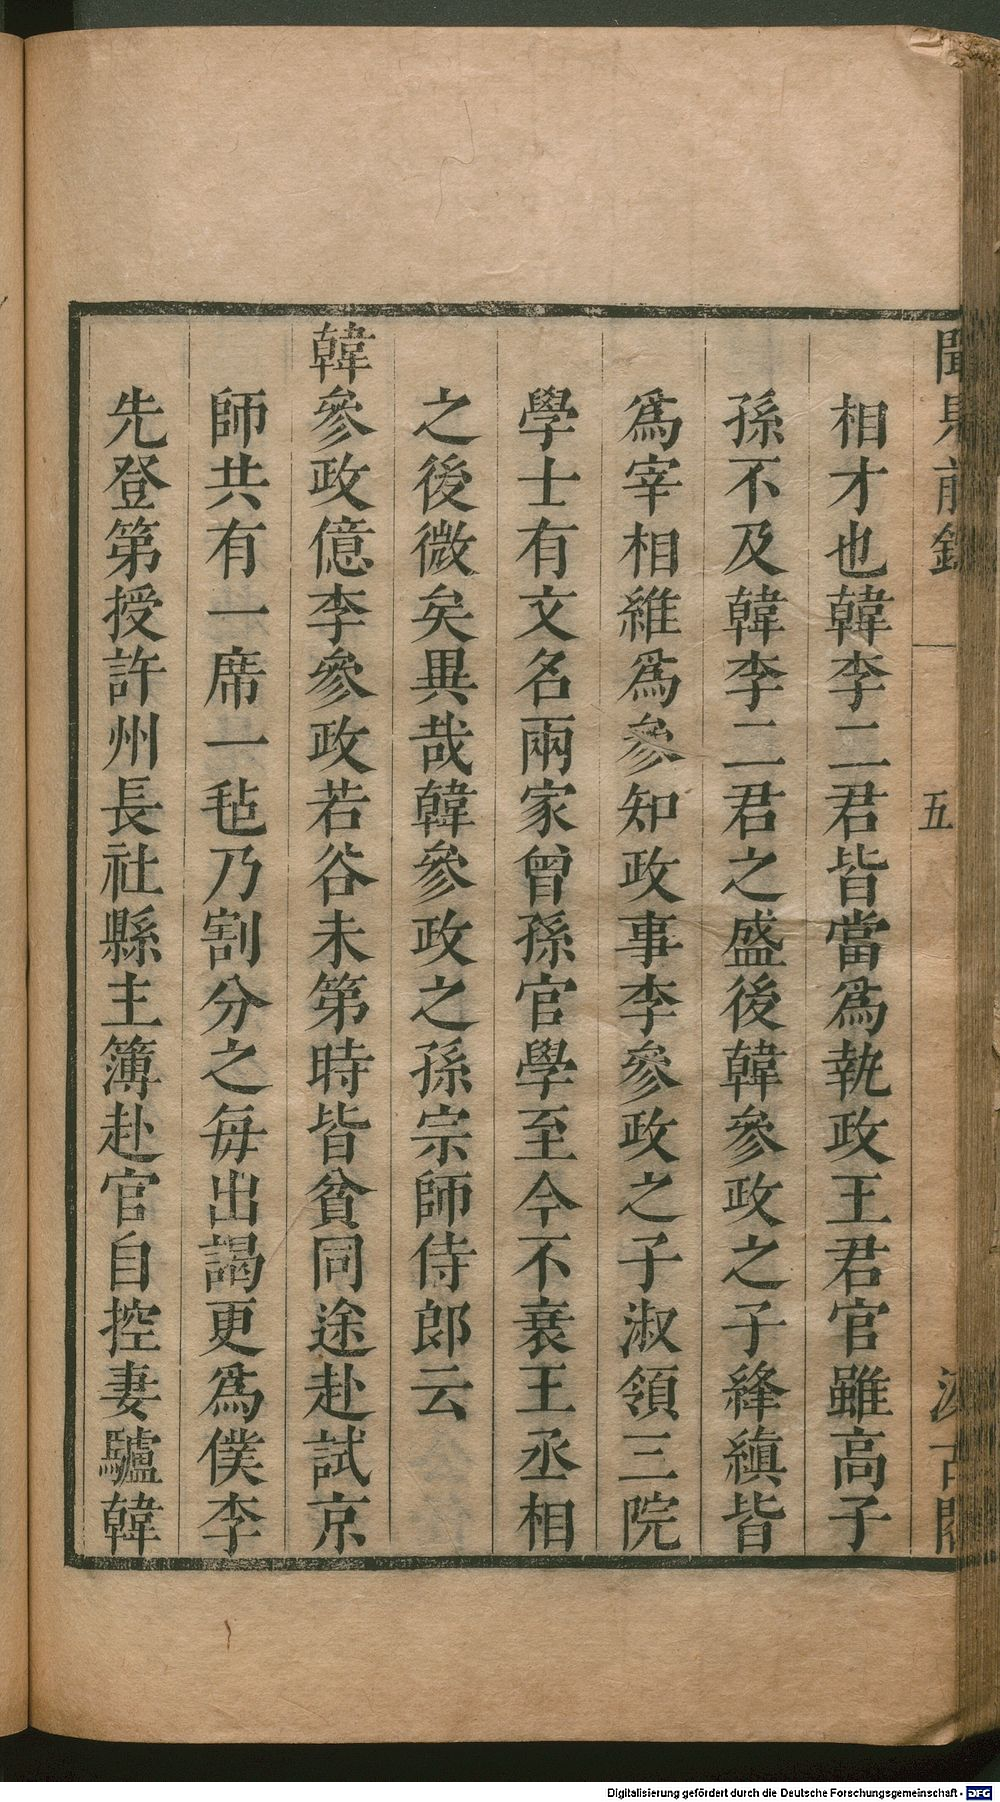 聞見前錄 一 五 汲古閣
相才也韓李二君皆當爲執政王君官雖高子
孫不及韓李二君之盛後韓參政之子絳縝皆
爲宰相維爲參知政事李參政之子淑領三院
學士有文名兩家曾孫官學至今不衰王丞相
之後微矣異哉韓參政之孫宗師侍郎云
韓參政億李參政若谷未第時皆貧同途赴試京
師共有一席一毡乃割分之每出謁更爲僕李
先登第授許州長社縣主簿赴官自控妻驢韓
Digitalisierung gefördert durch die Deutsche Forschungsgemeinschaft - DFG